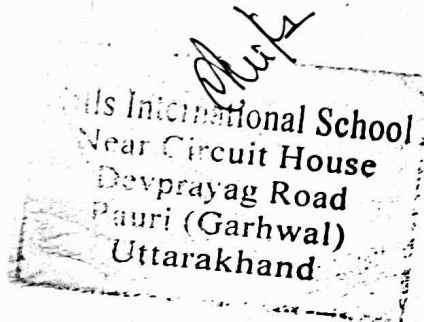 International School
Near Circuit House
Devprayag Road
Pauri (Garhwal)
Uttarakhand